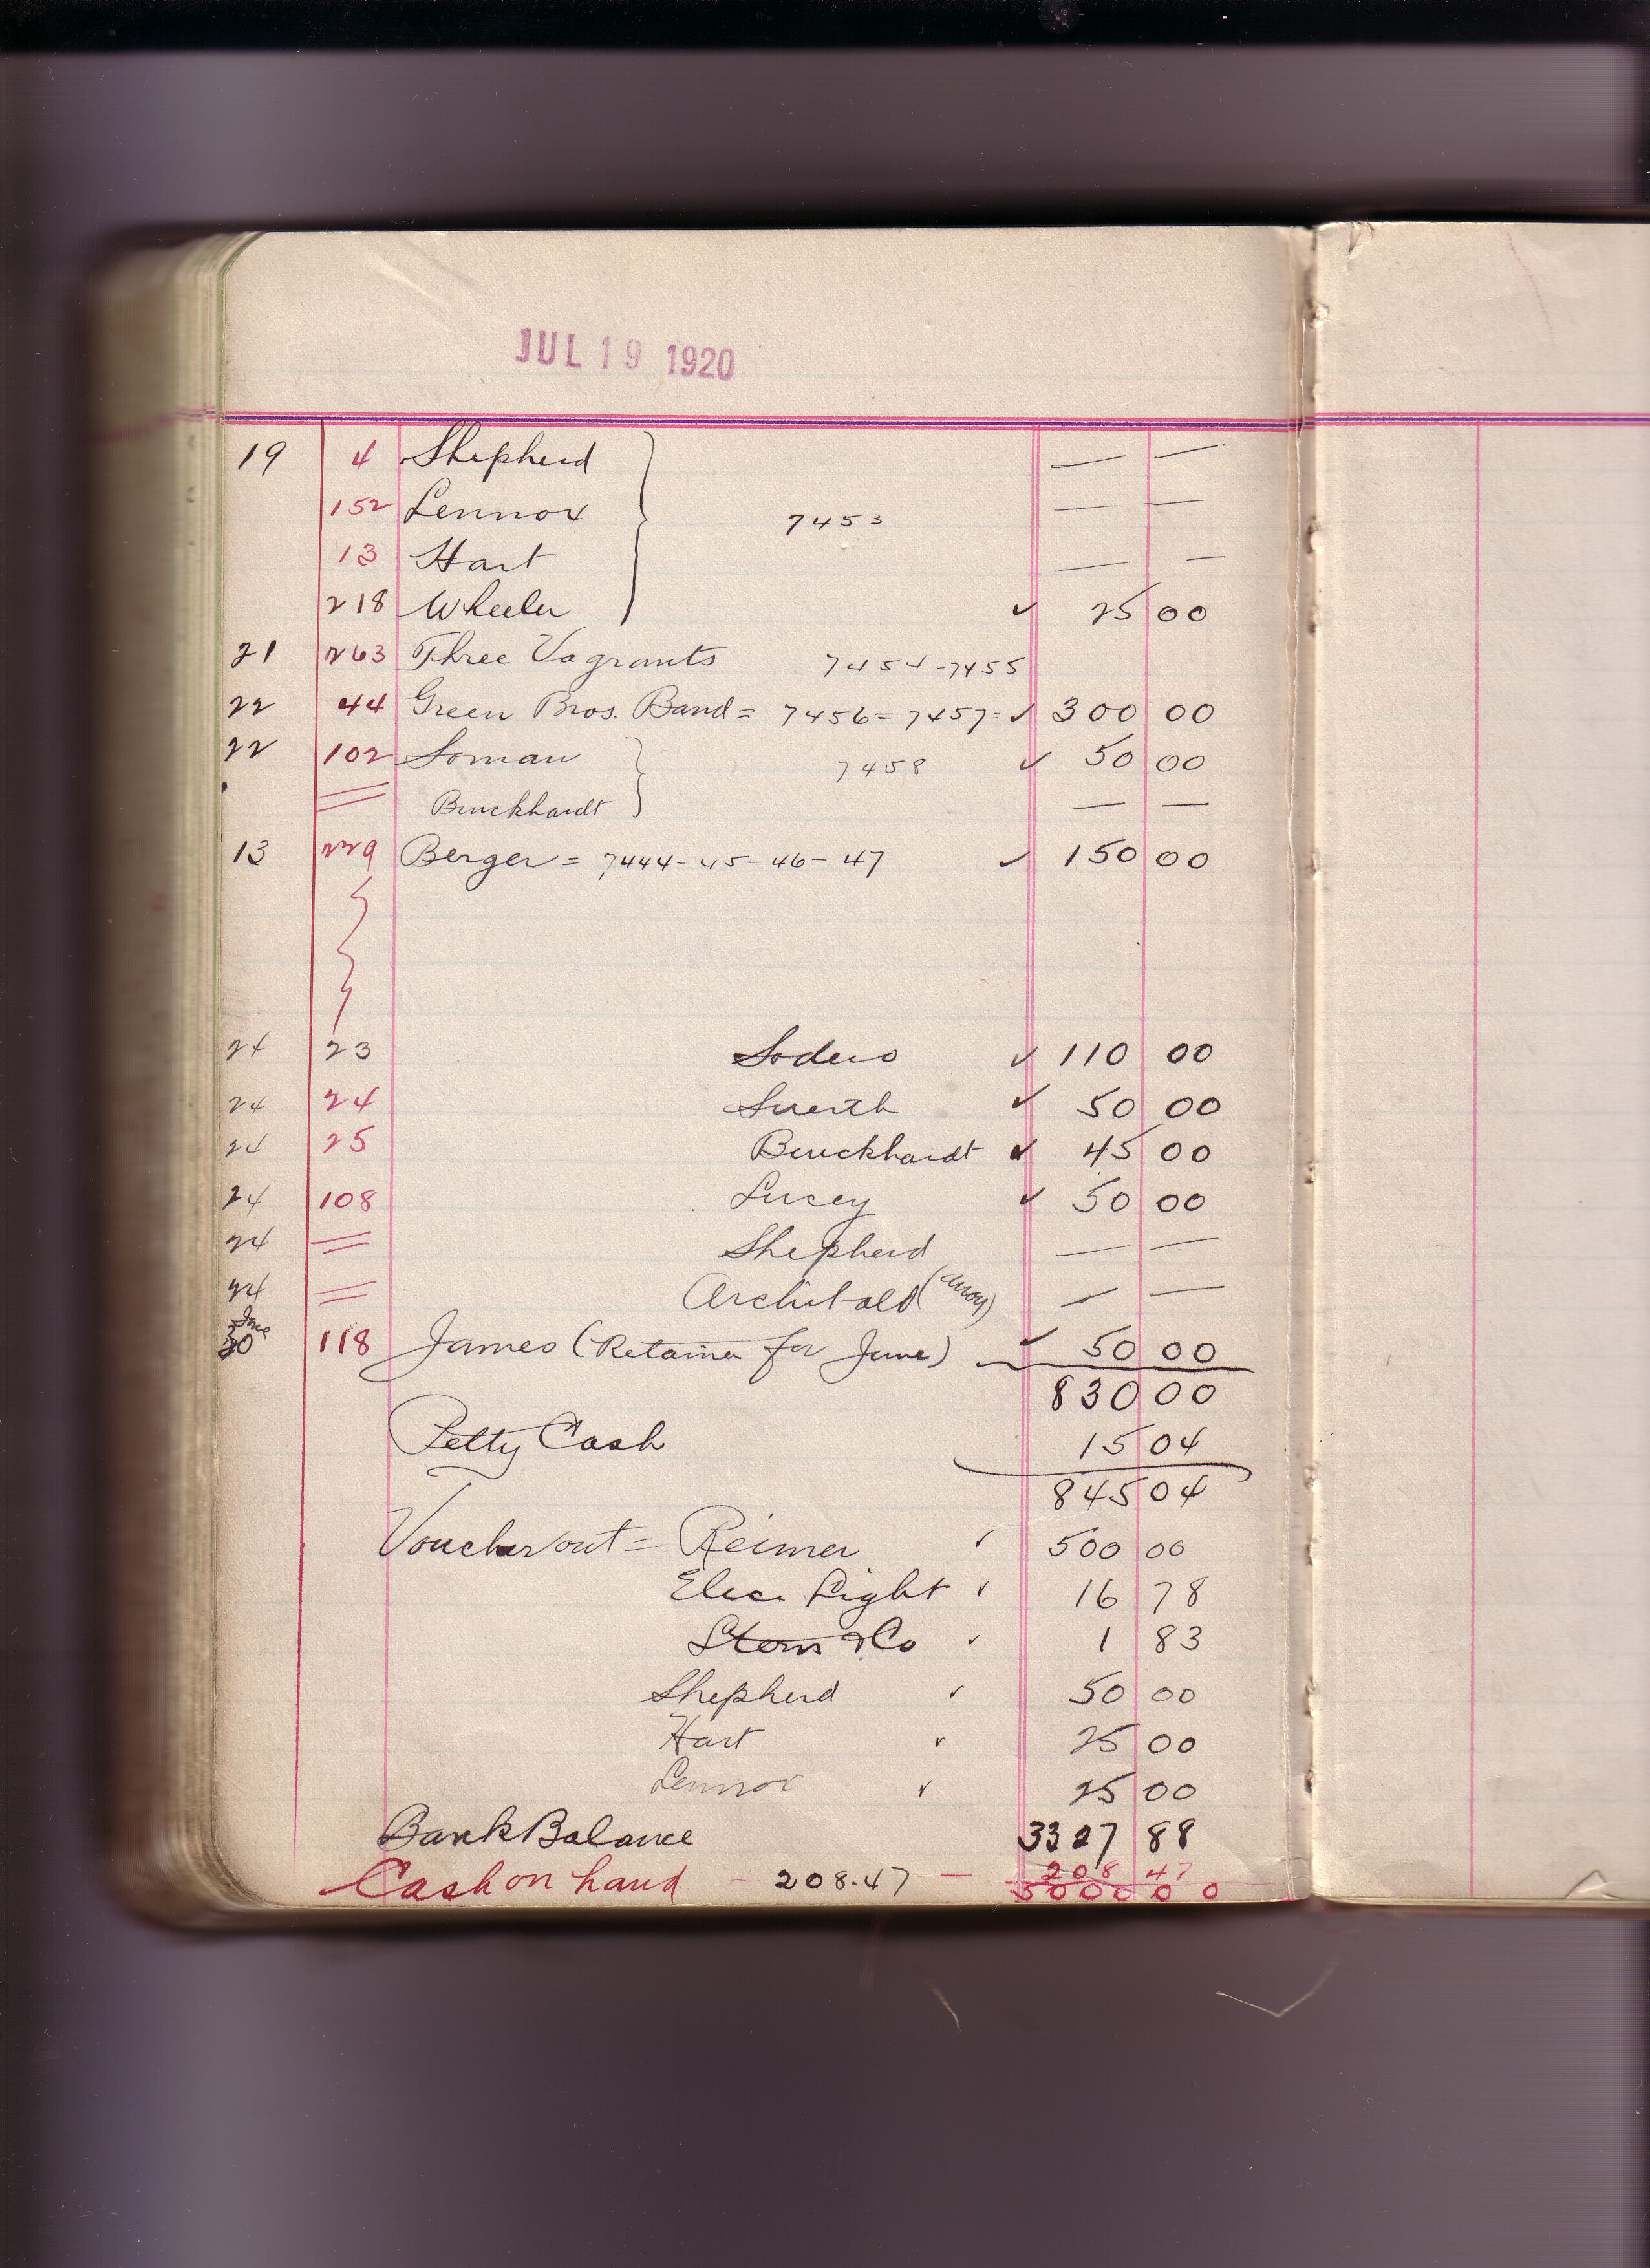 JUL 19 1920
19 4 Shepherd — —
152 Lennox 7453 — —
13 Hart — —
218 Wheeler ✓ 25 00
21 263 Three Vagrants 7454-7455
22 44 Green Bros. Band = 7456 = 7457 = ✓ 300 00
22 102 Loman 7458 ✓ 50 00
= Burckhardt — —
13 229 Berger = 7444-45-46-47 ✓ 150 00
24 23 Sodero ✓ 110 00
24 24 ✓ 50 00
24 25 Burckhardt ✓ 45 00
24 108 Lucey ✓ 50 00
24 = Shepherd — —
24 = Archibald — —
June 30 118 James (Retainer for June) ✓ 50 00
830 00
Petty Cash 15 04
845 04
Voucher out = Reimer ✓ 500 00
Elec. Light ✓ 16 78
Stern & Co ✓ 1 83
Shepherd ✓ 50 00
Hart ✓ 25 00
Lennox ✓ 25 00
Bank Balance 3327 88
Cash on hand — 208.47 — 208 47
5000 00